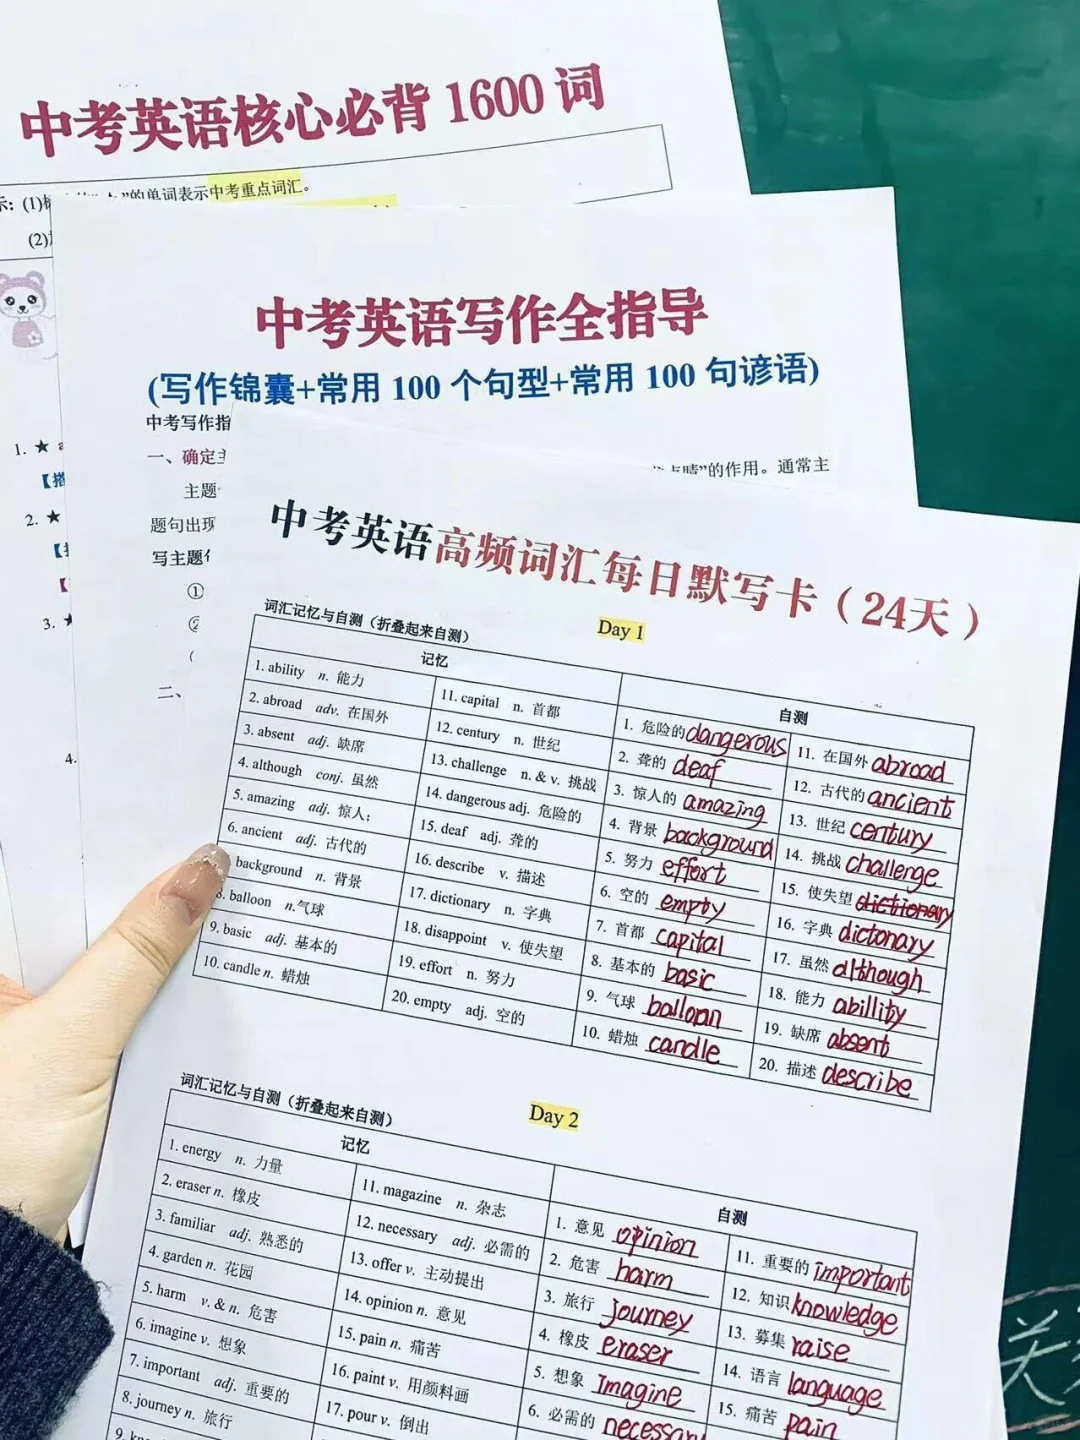 中考英语核心必背 1600 词
示：(1)
”的单词表示中考重点词汇。
(2)
1. ★ a
2. ★
3. ★
4.
中考英语写作全指导
(写作锦囊+常用 100 个句型+常用 100 句谚语)
中考写作指
一、确定主
主题
点睛”的作用。通常主
题句出现
写主题
①
②
二、
中考英语高频词汇每日默写卡（24天）
词汇记忆与自测（折叠起来自测）
Day 1
记忆
自测
1. ability n. 能力
2. abroad adv. 在国外
3. absent adj. 缺席
4. although conj. 虽然
5. amazing adj. 惊人；
6. ancient adj. 古代的
background n. 背景
8. balloon n.气球
9. basic adj. 基本的
10. candle n. 蜡烛
11. capital n. 首都
12. century n. 世纪
13. challenge n. & v. 挑战
14. dangerous adj. 危险的
15. deaf adj. 聋的
16. describe v. 描述
17. dictionary n. 字典
18. disappoint v. 使失望
19. effort n. 努力
20. empty adj. 空的
1. 危险的 dangerous
2. 聋的 deaf
3. 惊人的 amazing
4. 背景 background
5. 努力 effort
6. 空的 empty
7. 首都 capital
8. 基本的 basic
9. 气球 balloon
10. 蜡烛 candle
11. 在国外 abroad
12. 古代的 ancient
13. 世纪 century
14. 挑战 challenge
15. 使失望 dictionary
16. 字典 dictonary
17. 虽然 although
18. 能力 abillity
19. 缺席 absent
20. 描述 describe
词汇记忆与自测（折叠起来自测）
Day 2
记忆
自测
1. energy n. 力量
2. eraser n. 橡皮
3. familiar adj. 熟悉的
4. garden n. 花园
5. harm v. & n. 危害
6. imagine v. 想象
7. important adj. 重要的
8. journey n. 旅行
9.
11. magazine n. 杂志
12. necessary adj. 必需的
13. offer v. 主动提出
14. opinion n. 意见
15. pain n. 痛苦
16. paint v. 用颜料画
17. pour v. 倒出
1. 意见 opinion
2. 危害 harm
3. 旅行 journey
4. 橡皮 eraser
5. 想象 Imagine
6. 必需的 necessary
11. 重要的 important
12. 知识 knowledge
13. 募集 raise
14. 语言 language
15. 痛苦 pain
关